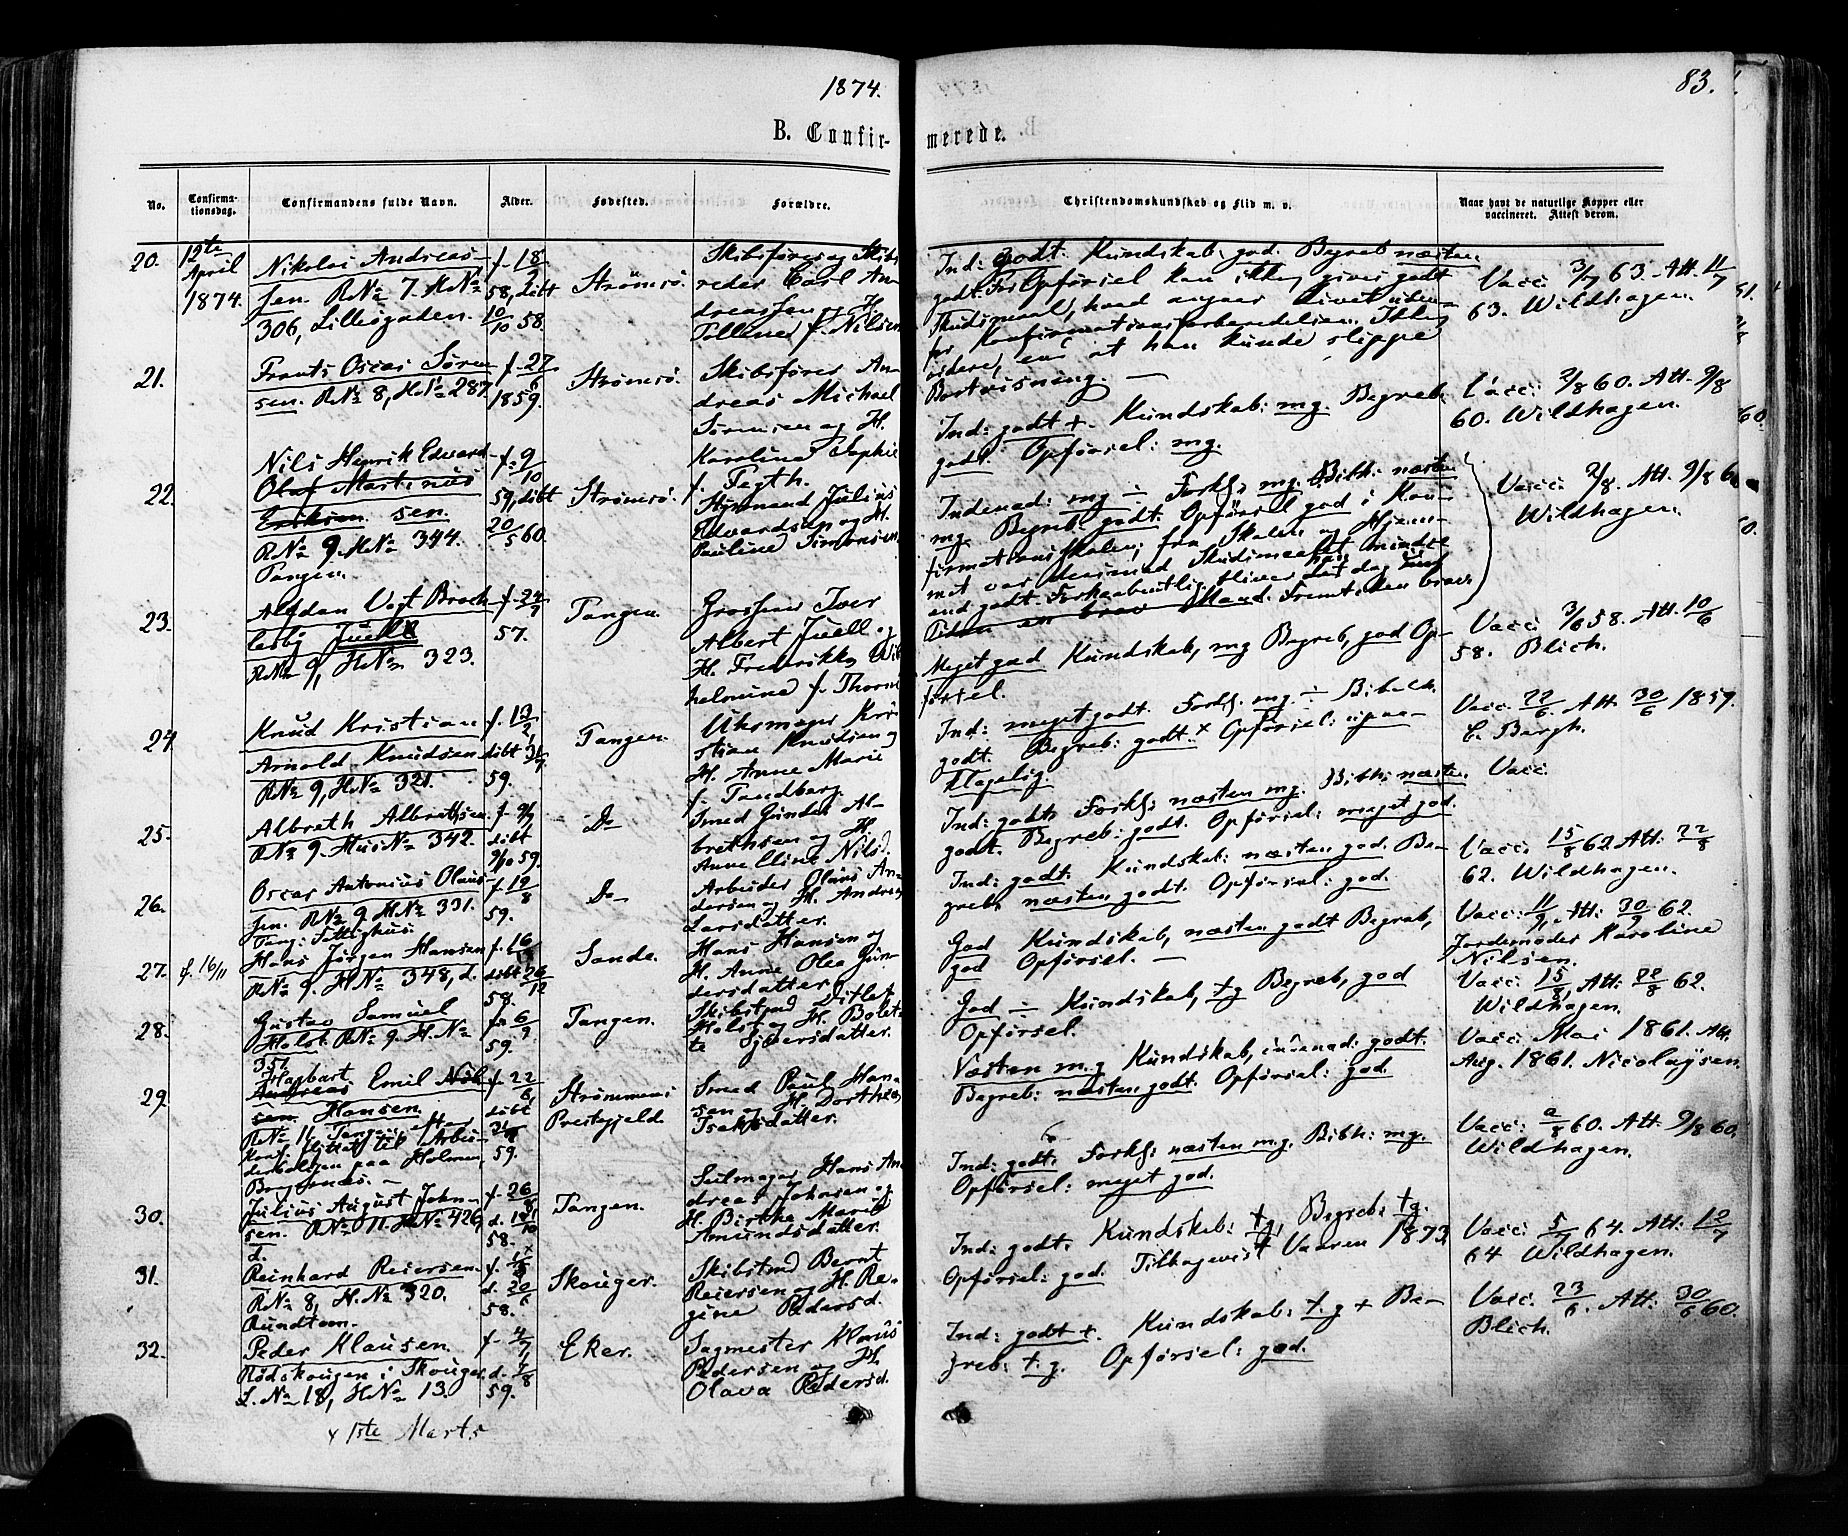 1874.
83.
B. Confir-
merede.
No.
Confirma-
tionsdag.
Confirmandens fulde Navn.
Alder.
Fødested.
Forældre.
Christendomskundskab og Flid m. v.
Naar havt de naturlige Kopper eller
vaccineret. Attest derom.
20.
12te
April
1874.
Nikolai Andreas-
sen. RNo 7. HNo
306, Lillegaden.
f. 18/2
58, döbt
10/10 58.
Strömsö.
Skibsförer og Skibs
reder Carl An-
dreassen og H.
Tolline f. Nilsen
Ind: godt. Kundskab: god. Begreb næsten
godt. For Opförsel kan ikke gives godt
Skudsmaal, hvad angaar Livet uden-
for Konfirmationsforberedelsen. Ikke
videre, end at han kunde slippe
Bortvisning. —
Vacc: 3/7 63. Att. 11/7
63. Wildhagen.
21.
Frants Oscar Sören-
sen. RNo 8, HNo 287.
f. 27/6
1859.
Strömsö.
Skibsförer An-
dreas Michael
Sörensen og H.
Karoline Sophie
f. Tegth.
Ind: godt +. Kundskab: mg. Begreb:
godt. Opförsel: mg.
Vacc: 2/8 60. Att. 9/8
60. Wildhagen.
22.
Nils Henrik Edvard-
Olaf Martinus
Eriksen. sen.
RNo 9. HNo 344.
Tangen.
f. 9/10
59, döbt
20/5 60.
Strömsö.
Styrmand Julius
Edvardsen og H.
Pauline Simonsen
Indenad: mg ÷ Forkl: mg. Bibh: næsten
mg. Begreb: godt. Opförsel god i Kon-
firmationsskolen; fra Skolen og Hjem-
met var derimod Skudsmaalet mindre
end godt. Forhaabentlig bliver det dog
en brav Mand. Fremtiden brav
Vacc: 2/8. Att. 9/8 60
Wildhagen.
23.
Alfdan Vogt Broch
lesby Juell
RNo 9, HNo 323.
f. 24/7
57.
Tangen.
Grosserer Iver
Albert Juell og
H. Fredrikke Wil
helmine f. Thorne
Meget god Kundskab, mg Begreb, god Op-
försel.
Vacc: 3/6 58. Att. 10/6
58. Blich.
24
Knud Kristian
Arnold Knudsen
RNo 9, HNo 321.
f. 13/2
döbt
59.
Tangen.
Uhrmager Kri-
stian Knudsen og
H. Anne Marie
f. Tandberg.
Ind: meget godt. Forkl. mg. ÷ Bibelh.
godt. Begreb: godt. + Opförsel: upaa-
klagelig.
Vacc: 22/6. Att. 30/6 1859.
C. Bergh.
25.
Albreth Albrethsen
RNo 9. HusNo 342.
f. 9/7
döbt
9/10 59.
Do
Smed Gunder Al-
brethsen og H.
Anne Eline Nilsd.
Ind: godt, Forkl: næsten mg. Bibh: næsten
godt. Begreb: godt. Opförsel: meget god.
Vacc.
26.
Oscar Antonius Olaus-
sen. RNo 9 HNo 331.
Tang: Fattighus.
f. 19/8
59.
Do
Arbeider Olaus An-
dersen og H. Andrea
Larsdatter.
Ind: godt: Kundskab: næsten god. Be-
greb: næsten godt. Opförsel: god.
Vacc: 15/8 62 Att: 22/8
62. Wildhagen.
27.
f. 16/11
Hans Jörgen Hansen
RNo 9. HNo 348, d.
f. 16
döbt 26/12
58.
Sande.
Hans Hansen og
H. Anne Olea Gun-
dersdatter.
God Kundskab, næsten godt Begreb,
god Opförsel. —
Vacc: 11/9, Att: 30/9 62.
Jordemoder Karoline
Nilsen.
28.
Gustav Samuel
Holst. RNo 9. H.No
351.
f. 6/9
59.
Tangen.
Skibstmd Ditlef
Holst og H. Bolet-
te Syversdatter.
God ÷ Kundskab, tg Begreb, god
Opförsel.
Vacc: 15/8, Att: 22/8 62.
Wildhagen.
29.
Hagbart
Andreas Emil Nil-
sen Hansen
RNo 11, Tangen, efter
Konf: flyttet til Arbei-
derboligen paa Holmen,
Bragernæs. —
f. 22/6,
döbt
59.
Strömmens
Prestegjeld.
Smed Paul Han-
sen og H. Dorthea
Isaksdatter.
Næsten mg Kundskab, indenad: godt.
Begreb: næsten godt. Opförsel: god.
Vacc: Mai 1861. Att.
Aug. 1861. Nicolaysen.
30.
Julius August John-
sen. RNo 11. HNo 426,
d.
f. 26/8
d.
58.
Tangen.
Seilmager Hans An
dreas Johnsen og
H. Birthe Marie
Amundsdatter.
Ind: godt, Forkl: næsten mg. Bibh: mg.
Opförsel: meget god.
Vacc: 2/8 60. Att. 9/8 60.
Wildhagen.
31.
Reinhard Reiersen.
RNo 8, H.No 320.
Rundtom.
d. 20/6
58.
Skouger.
Skibstmd Bernt
Reiersen og H. Re-
gine Pedersd.
Ind: godt. Kundskab: tg, Begreb: tg.
Opförsel: god. Tilbagevist Vaaren 1873.
Vacc: 5/7 64. Att: 12/7
64 Wildhagen.
32.
Peder Klausen.
Rödskougen i Skouger,
L.No 18, HNo 13.
f. 4/7,
d. 7/8
59.
Eker.
Sagmester Klaus
Pedersen og H.
Olava Pedersd.
Ind: godt +. Kundskab: t.g + Be-
greb: t.g. Opförsel: god.
Vacc: 23/6. Att: 30/6 60.
Blich.
x 1ste Marts